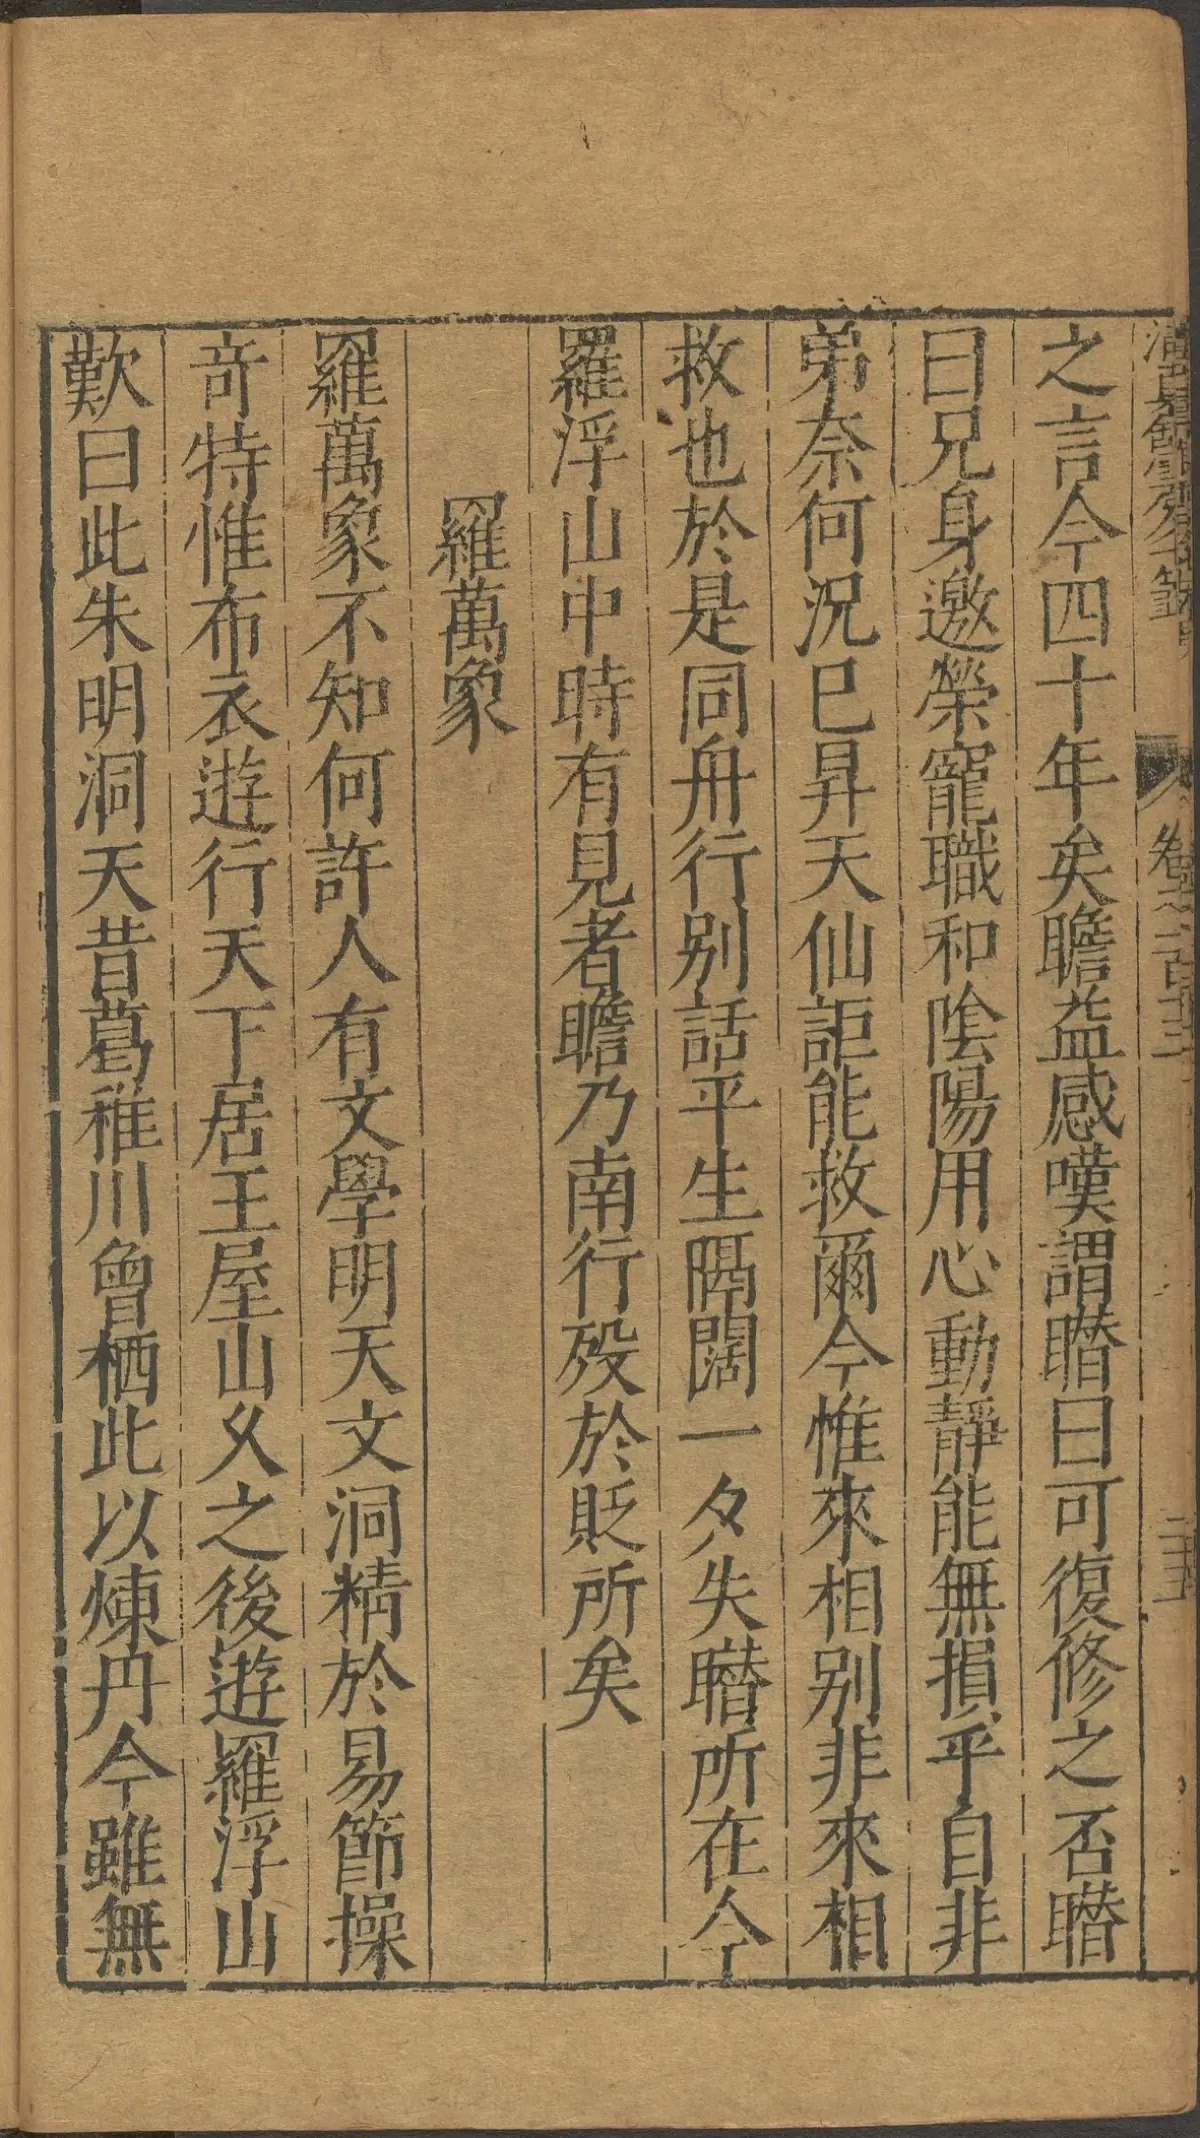 之言今四十年矣瞻益感嘆謂㬱曰可復修之否㬱
曰兄身邀榮寵職和陰陽用心動靜能無損乎自非
弟奈何況巳昇天仙詎能救爾今惟來相別非來相
救也於是同舟行別話平生隔闊一夕失㬱所在今
羅浮山中時有見者瞻乃南行歿於貶所矣
羅萬象
羅萬象不知何許人有文學明天文洞精於易節操
竒特惟布衣遊行天下居王屋山乆之後遊羅浮山
歎曰此朱明洞天昔葛稚川曾栖此以煉丹今雖無